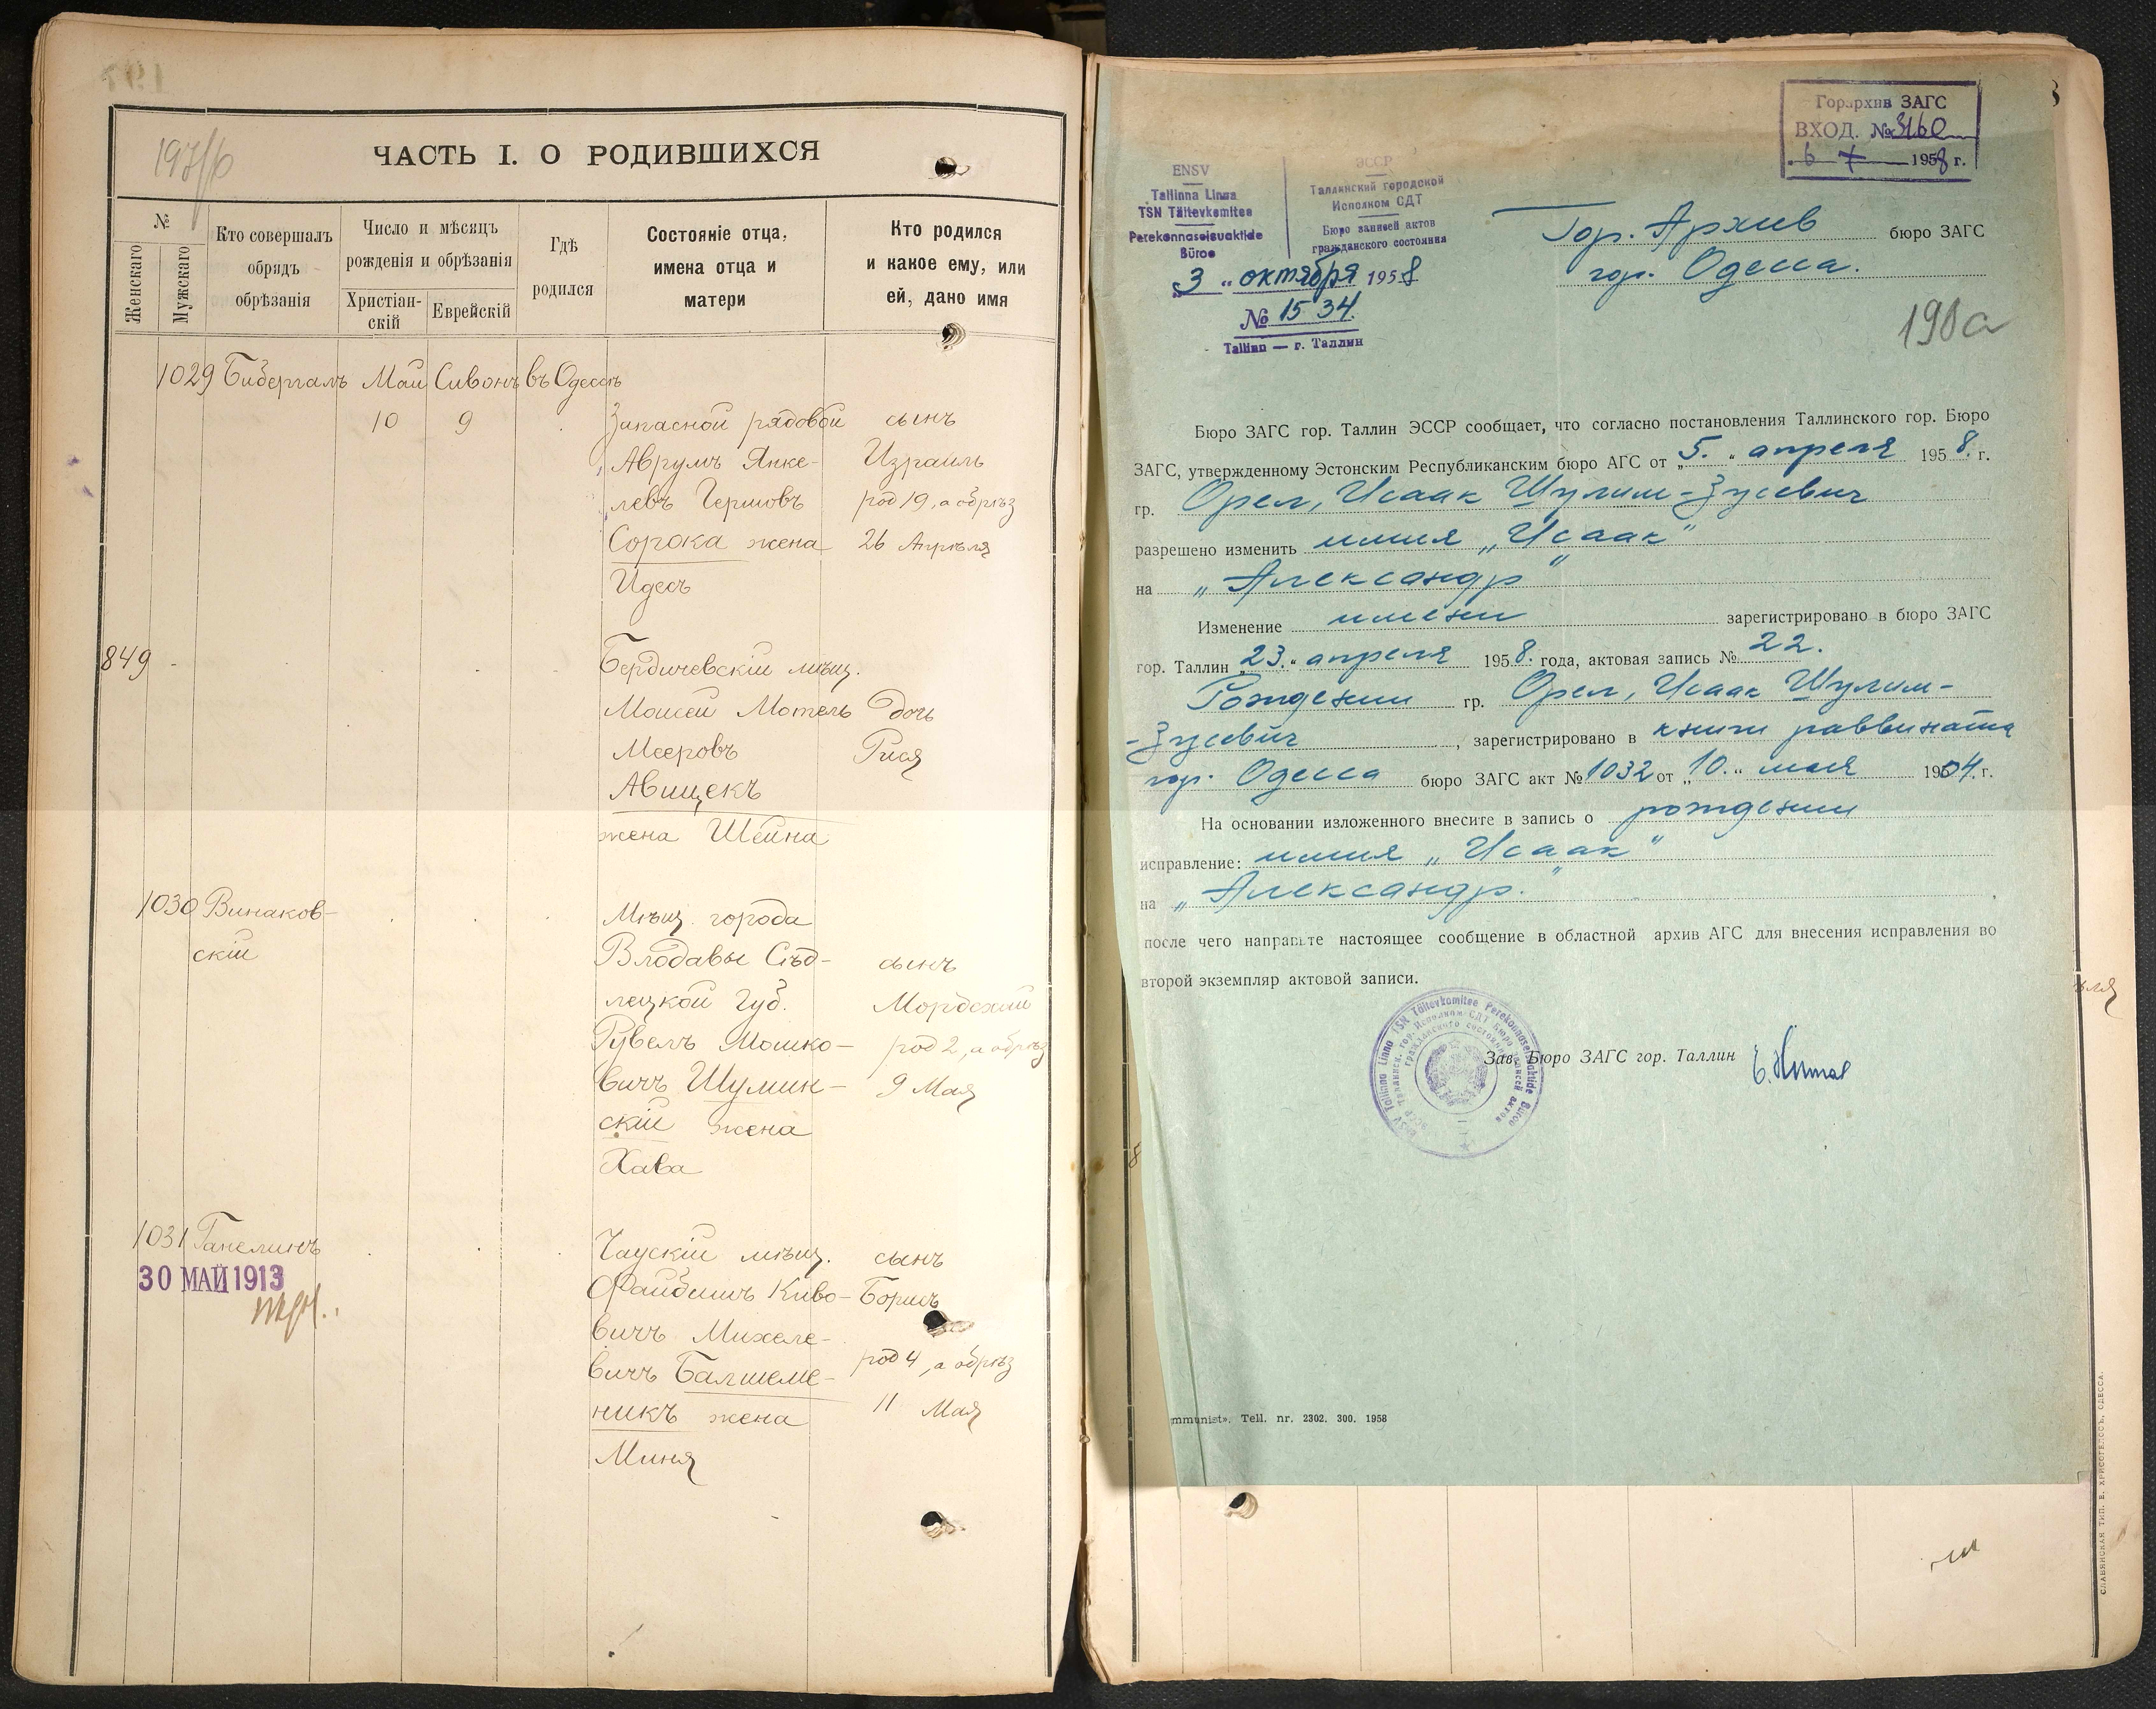 197/б
ЧАСТЬ I. О РОДИВШИХСЯ
№
Женскаго
Мужскаго
Кто совершалъ
обрядъ
обрѣзанія
Число и мѣсяцъ
рожденія и обрѣзанія
Христіан-
скій
Еврейскій
Гдѣ
родился
Состояніе отца,
имена отца и
матери
Кто родился
и какое ему, или
ей, дано имя
1029 Бибергалъ Май Сивонъ въ Одессѣ
10 9 Запасной рядовой сынъ
Аврумъ Янке- Израиль
левъ Гершовъ род 19, а обрѣз
Сорока жена 26 Апрѣля
Идесъ
849 Бердичевскій мѣщ.
Моисей Мотель дочь
Мееровъ Рися
Авищекъ
жена Шейна
1030 Винаков- Мѣщ. города
скій Влодавы Сѣд- сынъ
лецкой Губ. Мордехай
Рувелъ Мошко- род 2, а обрѣз
вичъ Шумин- 9 Мая
скій жена
Хава
1031 Ганелинъ Чаускій мѣщ. сынъ
30 МАЙ 1913
Файбишъ Киво- Борисъ
вичъ Михеле-
вичъ Балшеме- род 4, а обрѣз
никъ жена 11 Мая
Миня
Горархив ЗАГС
ВХОД. № 3160
6 X 1958 г.
ENSV
Tallinna Linna
TSN Täitevkomitee
Perekonnaseisuaktide
Büroo
ЭССР
Таллинский городской
Исполком СДТ
Бюро записей актов
гражданского состояния
„3“ октября 1958
№ 1534
Tallinn — г. Таллин
Гор. Архив бюро ЗАГС
гор. Одесса.
198а
Бюро ЗАГС гор. Таллин ЭССР сообщает, что согласно постановления Таллинского гор. Бюро
ЗАГС, утвержденному Эстонским Республиканским бюро АГС от „5.“ апреля 1958. г.
гр. Орел, Исаак Шулим-Зусевич
разрешено изменить имия „Исаак“
на „Александр“
Изменение имени зарегистрировано в бюро ЗАГС
гор. Таллин „23.“ апреля 1958. года, актовая запись № 22.
Рождении гр. Орел, Исаак Шулим-
-Зусевич, зарегистрировано в книги раввината
гор. Одесса бюро ЗАГС акт № 1032 от „10.“ мая 1904. г.
На основании изложенного внесите в запись о рождении
исправление: имия „Исаак“
на „Александр.“
после чего направьте настоящее сообщение в областной архив АГС для внесения исправления во
второй экземпляр актовой записи.
Зав. Бюро ЗАГС гор. Таллин
mmunist». Tell. nr. 2302. 300. 1958
СЛАВЯНСКАЯ ТИП. Е. ХРИСОГЕЛОСЪ, ОДЕССА.